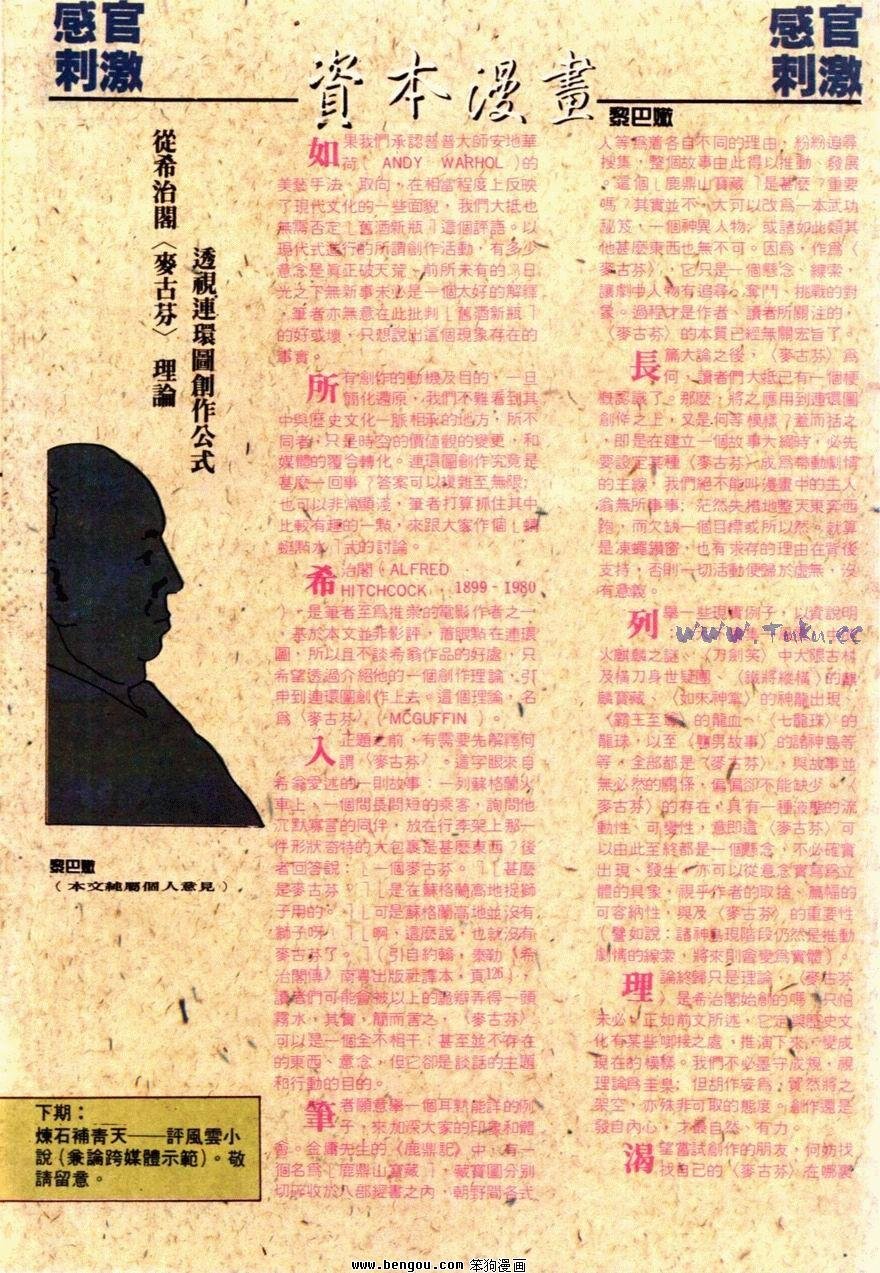 感官
刺激
資本漫畫
感官
刺激
黎巴嫩
從希治閣〈麥古芬〉理論
透視連環圖創作公式
如果我們承認普普大師安地華
荷( ANDY WARHOL )的
美藝手法、取向，在相當程度上反映
了現代文化的一些面貌，我們大抵也
無需否定「舊酒新瓶」這個評語。以
現代式進行的所謂創作活動，有多少
意念是真正破天荒、前所未有的？日
光之下無新事未必是一個太好的解釋
，筆者亦無意在此批判「舊酒新瓶」
的好或壞，只想說出這個現象存在的
事實。
所有創作的動機及目的，一旦
簡化還原，我們不難看到其
中與歷史文化一脈相承的地方，所不
同者，只是時空的價值觀的變更，和
媒體的覆合轉化。連環圖創作究竟是
甚麼一回事？答案可以複雜至無限；
也可以非常顯淺，筆者打算抓住其中
比較有趣的一點，來跟大家作個「蜻
蜓點水」式的討論。
希治閣(ALFRED
HITCHCOCK 1899-1980
)，是筆者至為推崇的電影作者之一
，基於本文並非影評，着眼點在連環
圖，所以且不談希翁作品的好處，只
希望透過介紹他的一個創作理論，引
申到連環圖創作上去。這個理論，名
為〈麥古芬〉( MCGUFFIN )。
入正題之前，有需要先解釋何
謂〈麥古芬〉。這字眼來自
希翁愛述的一則故事：一列蘇格蘭火
車上，一個問長問短的乘客，詢問他
沉默寡言的同伴，放在行李架上那一
件形狀奇特的大包裹是甚麼東西？後
者回答說：「一個麥古芬。」「甚麼
是麥古芬？」「是在蘇格蘭高地捉獅
子用的。」「可是蘇格蘭高地並沒有
獅子呀！」「啊，這麼說，也就沒有
麥古芬了。」(引自約翰．泰勒《希
治閣傳》南粵出版社譯本，頁126)，
讀者們可能會被以上的詭辯弄得一頭
霧水，其實，簡而言之，〈麥古芬〉
可以是一個全不相干；甚至並不存在
的東西、意念，但它卻是談話的主題
和行動的目的。
筆者願意舉一個耳熟能詳的例
子，來加深大家的印象和體
會。金庸先生的《鹿鼎記》中，有一
個名為「鹿鼎山寶藏」，藏寶圖分別
切碎收於八部經書之內，朝野間各式
人等為着各自不同的理由，紛紛追尋
搜集，整個故事由此得以推動、發展
。這個「鹿鼎山寶藏」是甚麼？重要
嗎？其實並不，大可以改為一本武功
秘笈，一個神異人物；或諸如此類其
他甚麼東西也無不可。因為，作為〈
麥古芬〉，它只是一個懸念、線索，
讓劇中人物有追尋、奪鬥、挑戰的對
象。過程才是作者、讀者所關注的，
〈麥古芬〉的本質已經無關宏旨了。
長篇大論之後，〈麥古芬〉為
何，讀者們大抵已有一個梗
概認識了。那麼，將之應用到連環圖
創作之上，又是何等模樣？蓋而括之
，即是在建立一個故事大綱時，必先
要設定某種〈麥古芬〉成為帶動劇情
的主線，我們絕不能叫漫畫中的主人
翁無所事事；茫然失措地整天東奔西
跑，而欠缺一個目標或所以然。就算
是凍蠅鑽窗，也有求存的理由在背後
支持，否則一切活動便歸於虛無，沒
有意義。
列舉一些現實例子，以資說明
火麒麟之謎、〈刀劍笑〉中大限古村
及橫刀身世疑團、〈鐵將縱橫〉的麒
麟寶藏、〈如來神掌〉的神龍出現、
〈霸王至尊〉的龍血、〈七龍珠〉的
龍珠，以至〈醜男故事〉的諸神島等
等，全部都是〈麥古芬〉，與故事並
無必然的關係，偏偏卻不能缺少。〈
麥古芬〉的存在，具有一種液態的流
動性、可變性，意即這〈麥古芬〉可
以由此至終都是一個懸念，不必確實
出現、發生，亦可以從意念實寫為立
體的具象，視乎作者的取捨、篇幅的
可容納性，與及〈麥古芬〉的重要性
(譬如說：諸神島現階段仍然是推動
劇情的線索，將來則會變為實體)。
理論終歸只是理論，〈麥古芬
〉是希治閣始創的嗎？只怕
未必，正如前文所述，它定與歷史文
化有某些啣接之處，推演下來，變成
現在的模樣。我們不必墨守成規，視
理論為圭臬；但胡作妄為，貿然將之
架空，亦殊非可取的態度。創作還是
發自內心，才最自然、有力。
渴望嘗試創作的朋友，何妨找
找自己的〈麥古芬〉在哪裏
www.Tuku.cc
黎巴嫩
（本文純屬個人意見）
下期：
煉石補青天——評風雲小
說(兼論跨媒體示範)。敬
請留意。
www.bengou.com 笨狗漫画